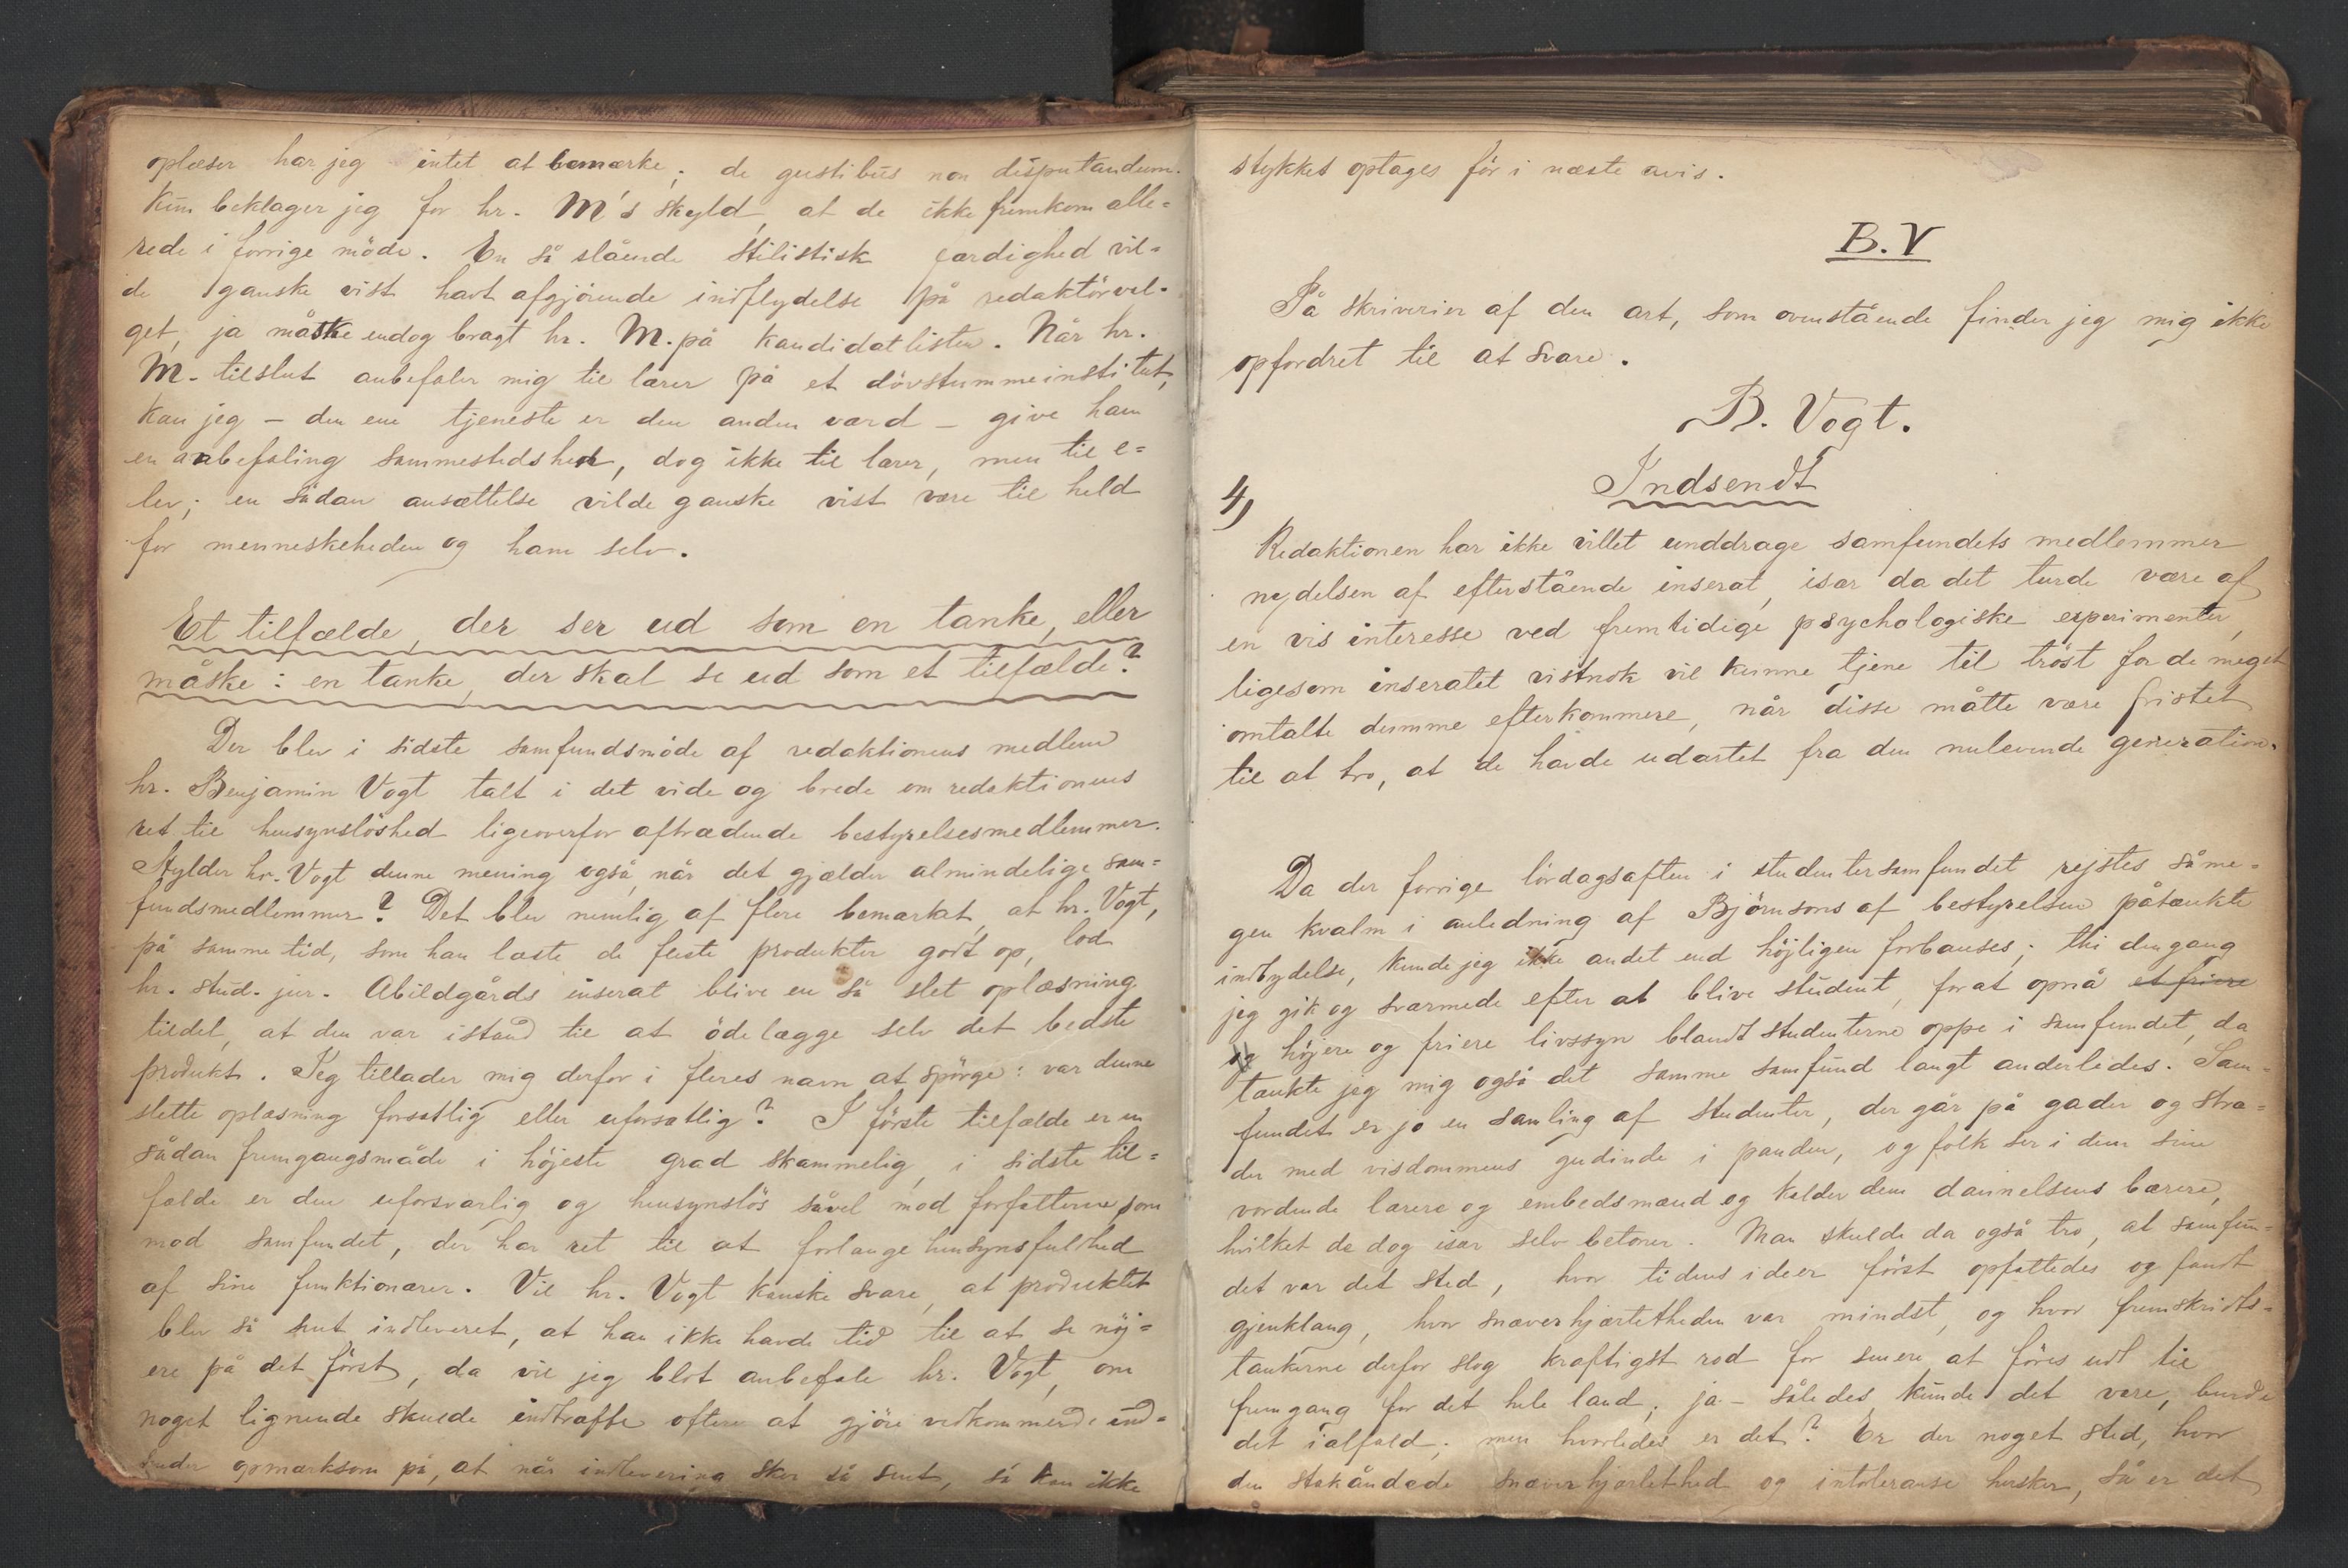 oplæser har jeg intet at bemærke; de gustibus non disputandum.
Kun beklager jeg for hr. M's skyld, at de ikke fremkom alle=
rede i forrige möde. En så slående stilistisk færdighed vil=
de ganske vist havt afgjörende indflydelse på redaktörval-
get, ja måske endog bragt hr. M. på kandidatlisten. Når hr.
M. tilslut anbefaler mig til lærer på et dövstummeinstitut,
kan jeg – den ene tjeneste er den anden værd – give ham
en anbefaling sammestedshen, dog ikke til lærer, men til e=
lev; en sådan ansættelse vilde ganske vist være til held
for menneskeheden og ham selv.
Et tilfælde, der ser ud som en tanke, eller
måske: en tanke, der skal se ud som et tilfælde?
Der blev i sidste samfundsmöde af redaktionens medlem
hr. Benjamin Vogt talt i det vide og brede om redaktionens
ret til hensynslöshed ligeoverfor aftrædende bestyrelsesmedlemmer.
Hylder hr. Vogt denne mening også, når det gjælder almindelige sam=
fundsmedlemmer? Det blev nemlig af flere bemærket, at hr. Vogt,
på samme tid, som han læste de fleste produkter godt op, lod
hr. stud. jur. Abildgårds inserat blive en så slet oplæsning
tildel, at den var istand til at ödelægge selv det bedste
produkt. Jeg tillader mig derfor i fleres navn at spörge: var denne
slette oplæsning forsætlig eller uforsætlig? I förste tilfælde er en
sådan fremgangsmåde i höjeste grad skammelig, i sidste til=
fælde er den uforsvarlig og hensynslös såvel mod forfatterne som
mod samfundet, der har ret til at forlange hensynsfuldhed
af sine funktionærer. Vil hr. Vogt kanske svare, at produktet
blev så sent indleveret, at han ikke havde tid til at se nöj=
ere på det först, da vil jeg blot anbefale hr. Vogt, om
noget lignende skulde indtræffe oftere at gjöre vedkommende ind=
sender opmærksom på, at når indlevering sker så sent, så kan ikke
stykket optages för i næste avis.
B.V
På skriverier af den art, som ovenstående finder jeg mig ikke
opfordret til at svare.
B. Vogt.
4) Indsendt
Redaktionen har ikke villet unddrage samfundets medlemmer
nydelsen af efterstående inserat, især da det turde være af
en vis interesse ved fremtidige psychologiske experimenter,
ligesom inseratet vistnok vil kunne tjene til tröst for de meget
omtalte dumme efterkommere, når disse måtte være fristet
til at tro, at de havde udartet fra den nulevende generation.
Da der forrige lördagsaften i studentersamfundet rejstes såme-
gen kvalm i anledning af Björnsons af bestyrelsen påtænkte
indbydelse, kunde jeg ikke andet end höjligen forbauses; thi dengang
jeg gik og sværmede efter at blive student, for at opnå et friere
og höjere og friere livssyn blandt studenterne oppe i samfundet, da
tænkte jeg mig også det samme samfund langt anderledes. Sam=
fundet er jo en samling af studenter, der går på gader og stræ=
der med visdommens gudinde i panden, og folk ser i dem sine
vordende lærere og embedsmænd og kalder dem dannelsens bærere,
hvilket de dog især selv betoner. Man skulde da også tro, at samfun=
det var det sted, hvor tidens ideer först opfattedes og fandt
gjenklang, hvor snæverhjærtetheden var mindst, og hvor fremskridts=
tankerne derfor slog kraftigst rod for senere at föres udt til
fremgang for det hele land; ja – således kunde det være, burde
det ialfald; men hvorledes er det? Er der noget sted, hvor
den stakåndede snæverhjærtethed og intoleranse hersker, så er det